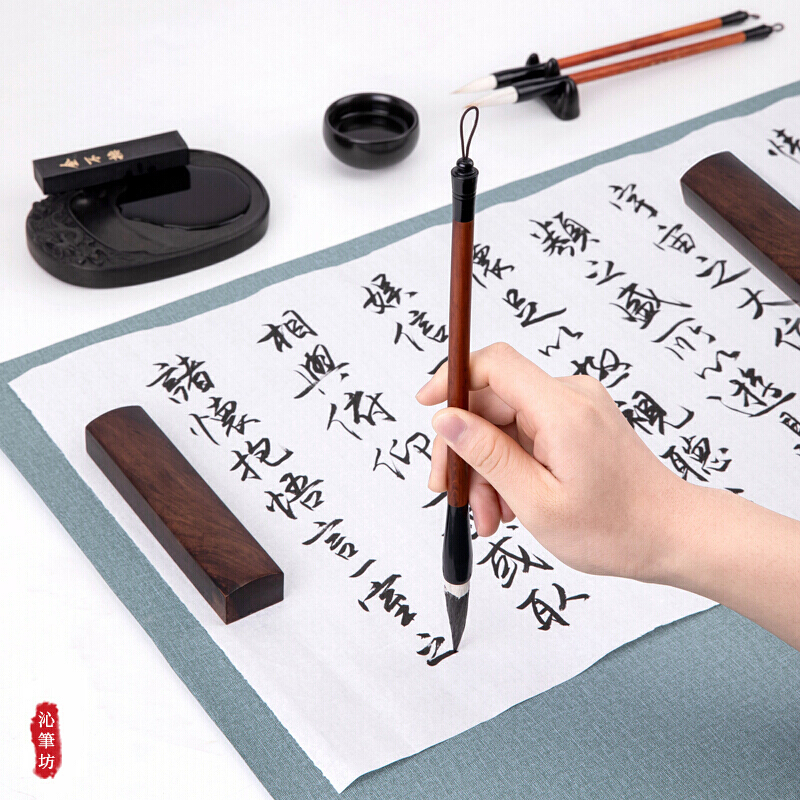 情
宇宙之大俯
類之盛所以遊目
懷足以極視聽
娛信
相與俯仰
或取
諸懷抱悟言一室之
沁筆坊